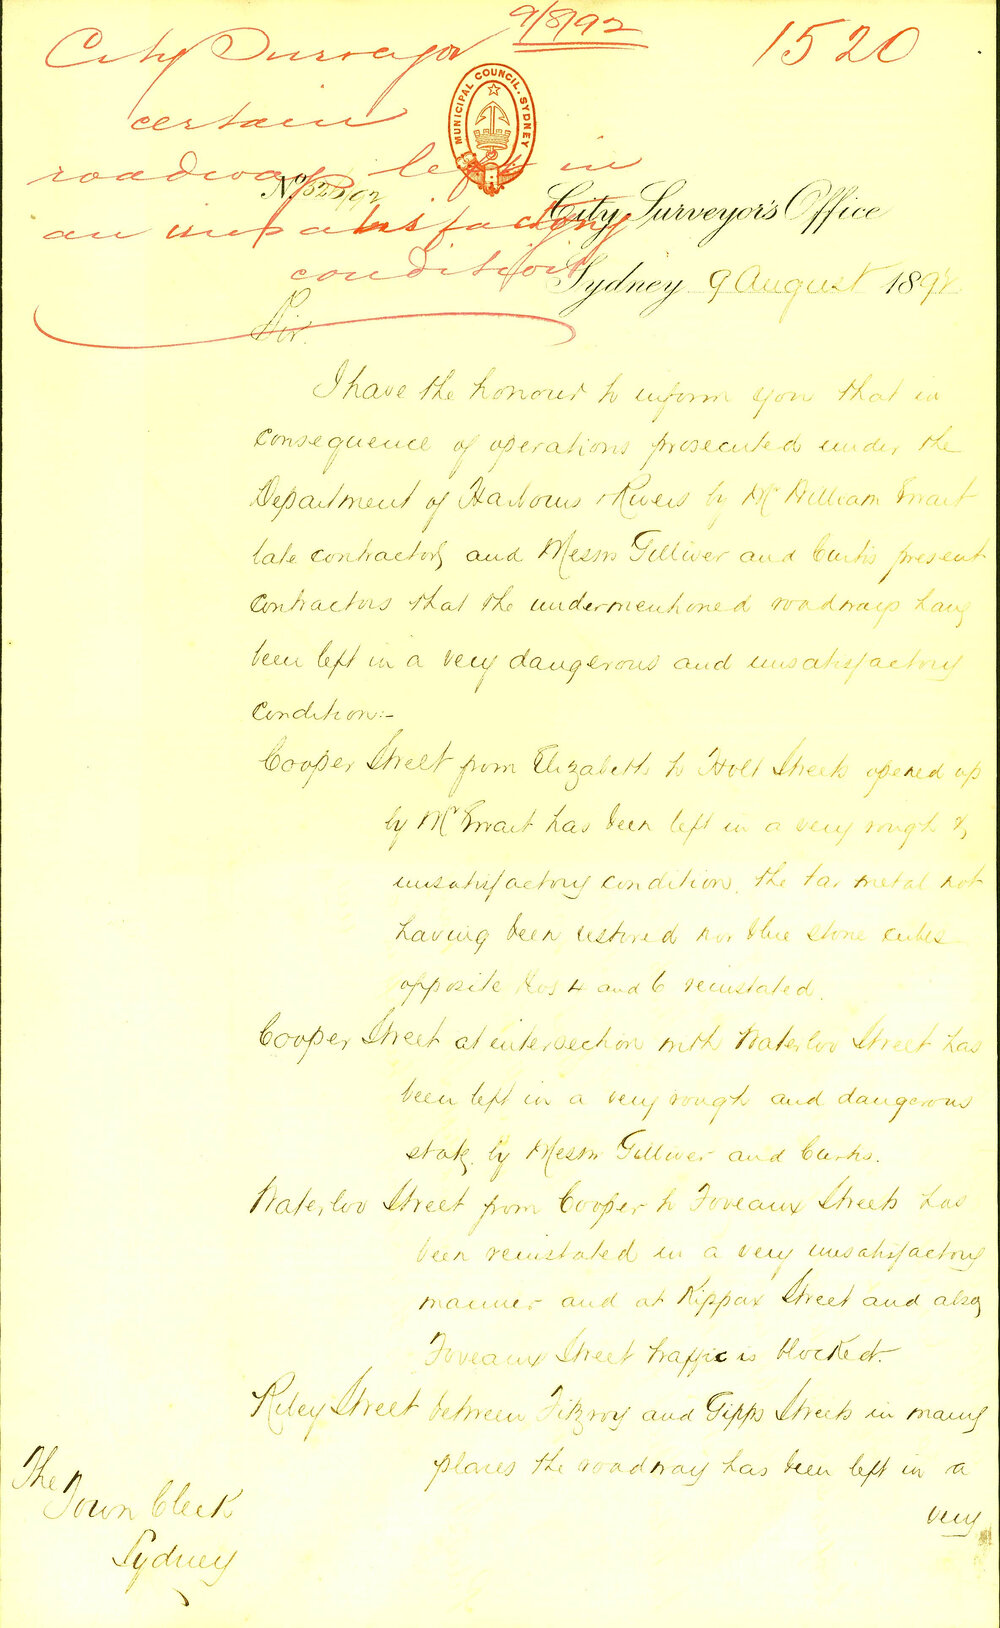 9/8/92
1520
City Surveyor
certain
roadways left in
an unsatisfactory
condition
MUNICIPAL COUNCIL. SYDNEY
No 525/92
City Surveyor's Office
Sydney 9 August 1892
Sir.
I have the honour to inform you that in
consequence of operations prosecuted under the
Department of Harbours & Rivers by Mr William Ewart
late contractor, and Messrs Gilliver and Curtis present
contractors that the undermentioned roadways have
been left in a very dangerous and unsatisfactory
condition:-
Cooper Street from Elizabeth to Holt Streets opened up
by Mr Ewart has been left in a very rough &
unsatisfactory condition, the tar metal not
having been restored nor blue stone cubes
opposite Nos 4 and 6 reinstated.
Cooper Street at intersection with Waterloo Street has
been left in a very rough and dangerous
state, by Messrs Gilliver and Curtis.
Waterloo Street from Cooper to Foveaux Streets has
been reinstated in a very unsatisfactory
manner and at Kippax Street and also
Foveaux Street traffic is blocked.
Riley Street between Fitzroy and Gipps Streets in many
places the roadway has been left in a
very
The
Town Clerk
Sydney